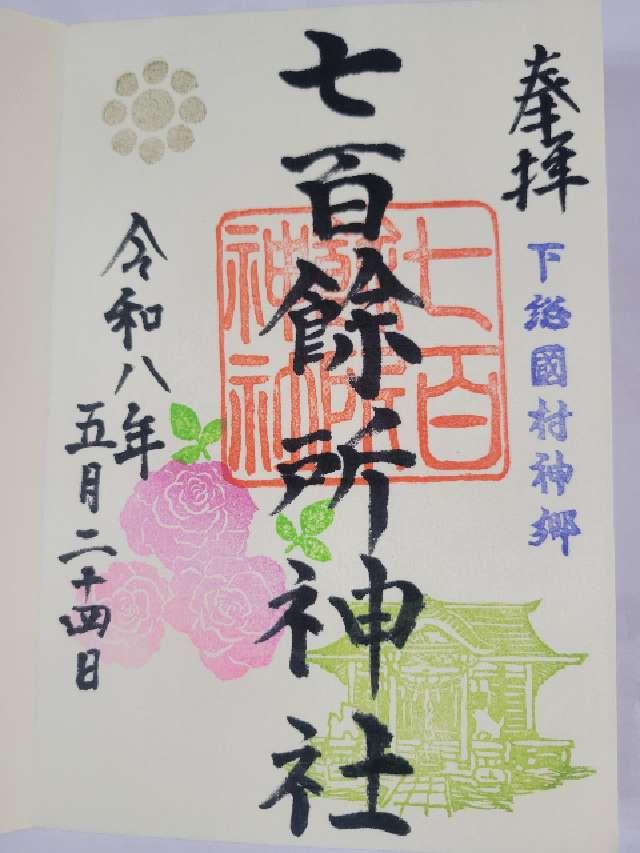 奉拝
下総國村神郷
七百餘所神社
七百餘所神社
令和八年
五月二十四日